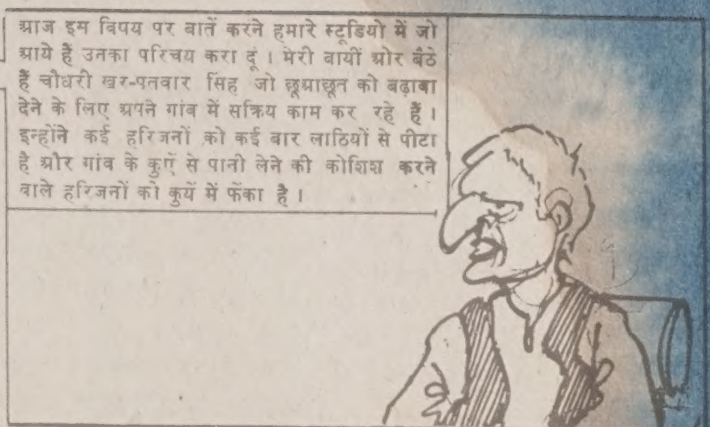 आज इस विषय पर बातें करने हमारे स्टूडियो में जो
आये हैं उनका परिचय करा दूं । मेरी बायीं ओर बैठे
हैं चौधरी खर-पतवार सिंह जो छूआछूत को बढ़ावा
देने के लिए अपने गांव में सक्रिय काम कर रहे हैं ।
इन्होंने कई हरिजनों को कई बार लाठियों से पीटा
है और गांव के कुएँ से पानी लेने की कोशिश करने
वाले हरिजनों को कुयें में फेंका है ।